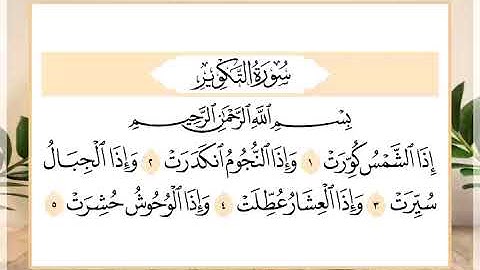 سُورَةُ التَّكْوِيرِ
بِسْمِ اللَّهِ الرَّحْمَٰنِ الرَّحِيمِ
إِذَا الشَّمْسُ كُوِّرَتْ ١ وَإِذَا النُّجُومُ انْكَدَرَتْ ٢ وَإِذَا الْجِبَالُ
سُيِّرَتْ ٣ وَإِذَا الْعِشَارُ عُطِّلَتْ ٤ وَإِذَا الْوُحُوشُ حُشِرَتْ ٥